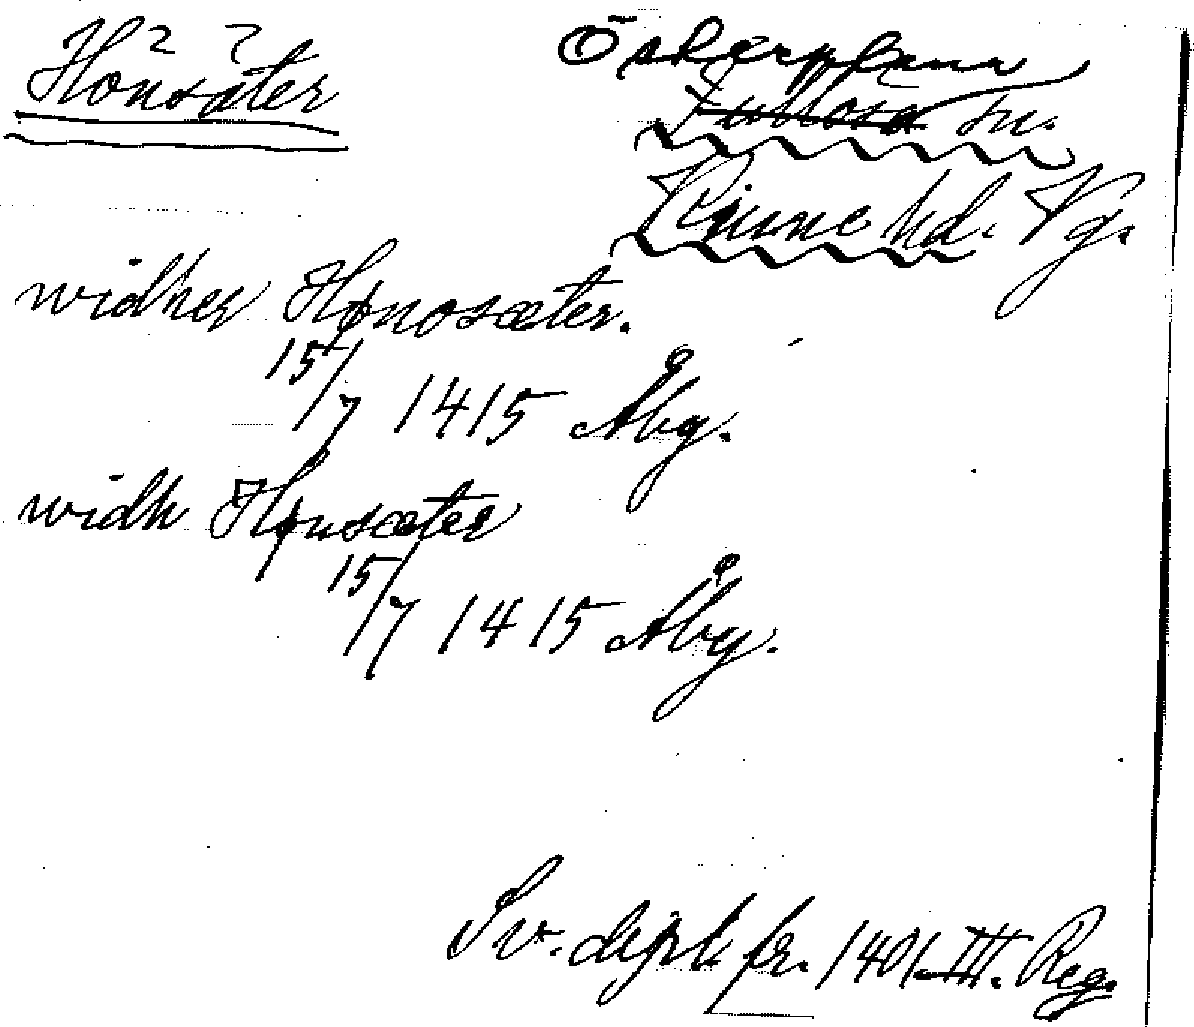 Hönsäter
Österplana
Fullösa sn.
Kinne hd. Vg.
widher Hønosæter.
15/7 1415 Åbg.
widh Hønsæter
15/7 1415 Åbg.
Sv. dipl. fr. 1401 III. Reg.